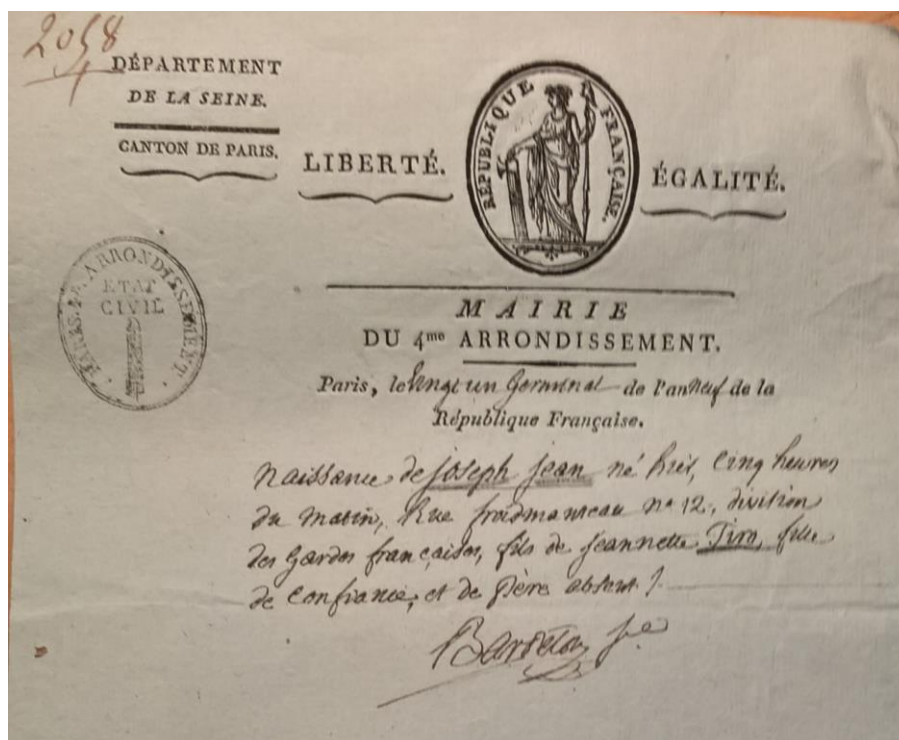 2058
DÉPARTEMENT
DE LA SEINE.
CANTON DE PARIS.
LIBERTÉ.
RÉPUBLIQUE FRANÇAISE.
ÉGALITÉ.
PARIS. 4e ARRONDISSEMENT.
ETAT
CIVIL
MAIRIE
DU 4me ARRONDISSEMENT.
Paris, le Vingt un Germinal de l'an Neuf de la
République Française.
Naissance de Joseph Jean né hier, cinq heures
du matin, Rue froidmanteau n° 12, division
des Gardes françaises, fils de Jeannette Tiro, fille
de Confiance, et de Père absent